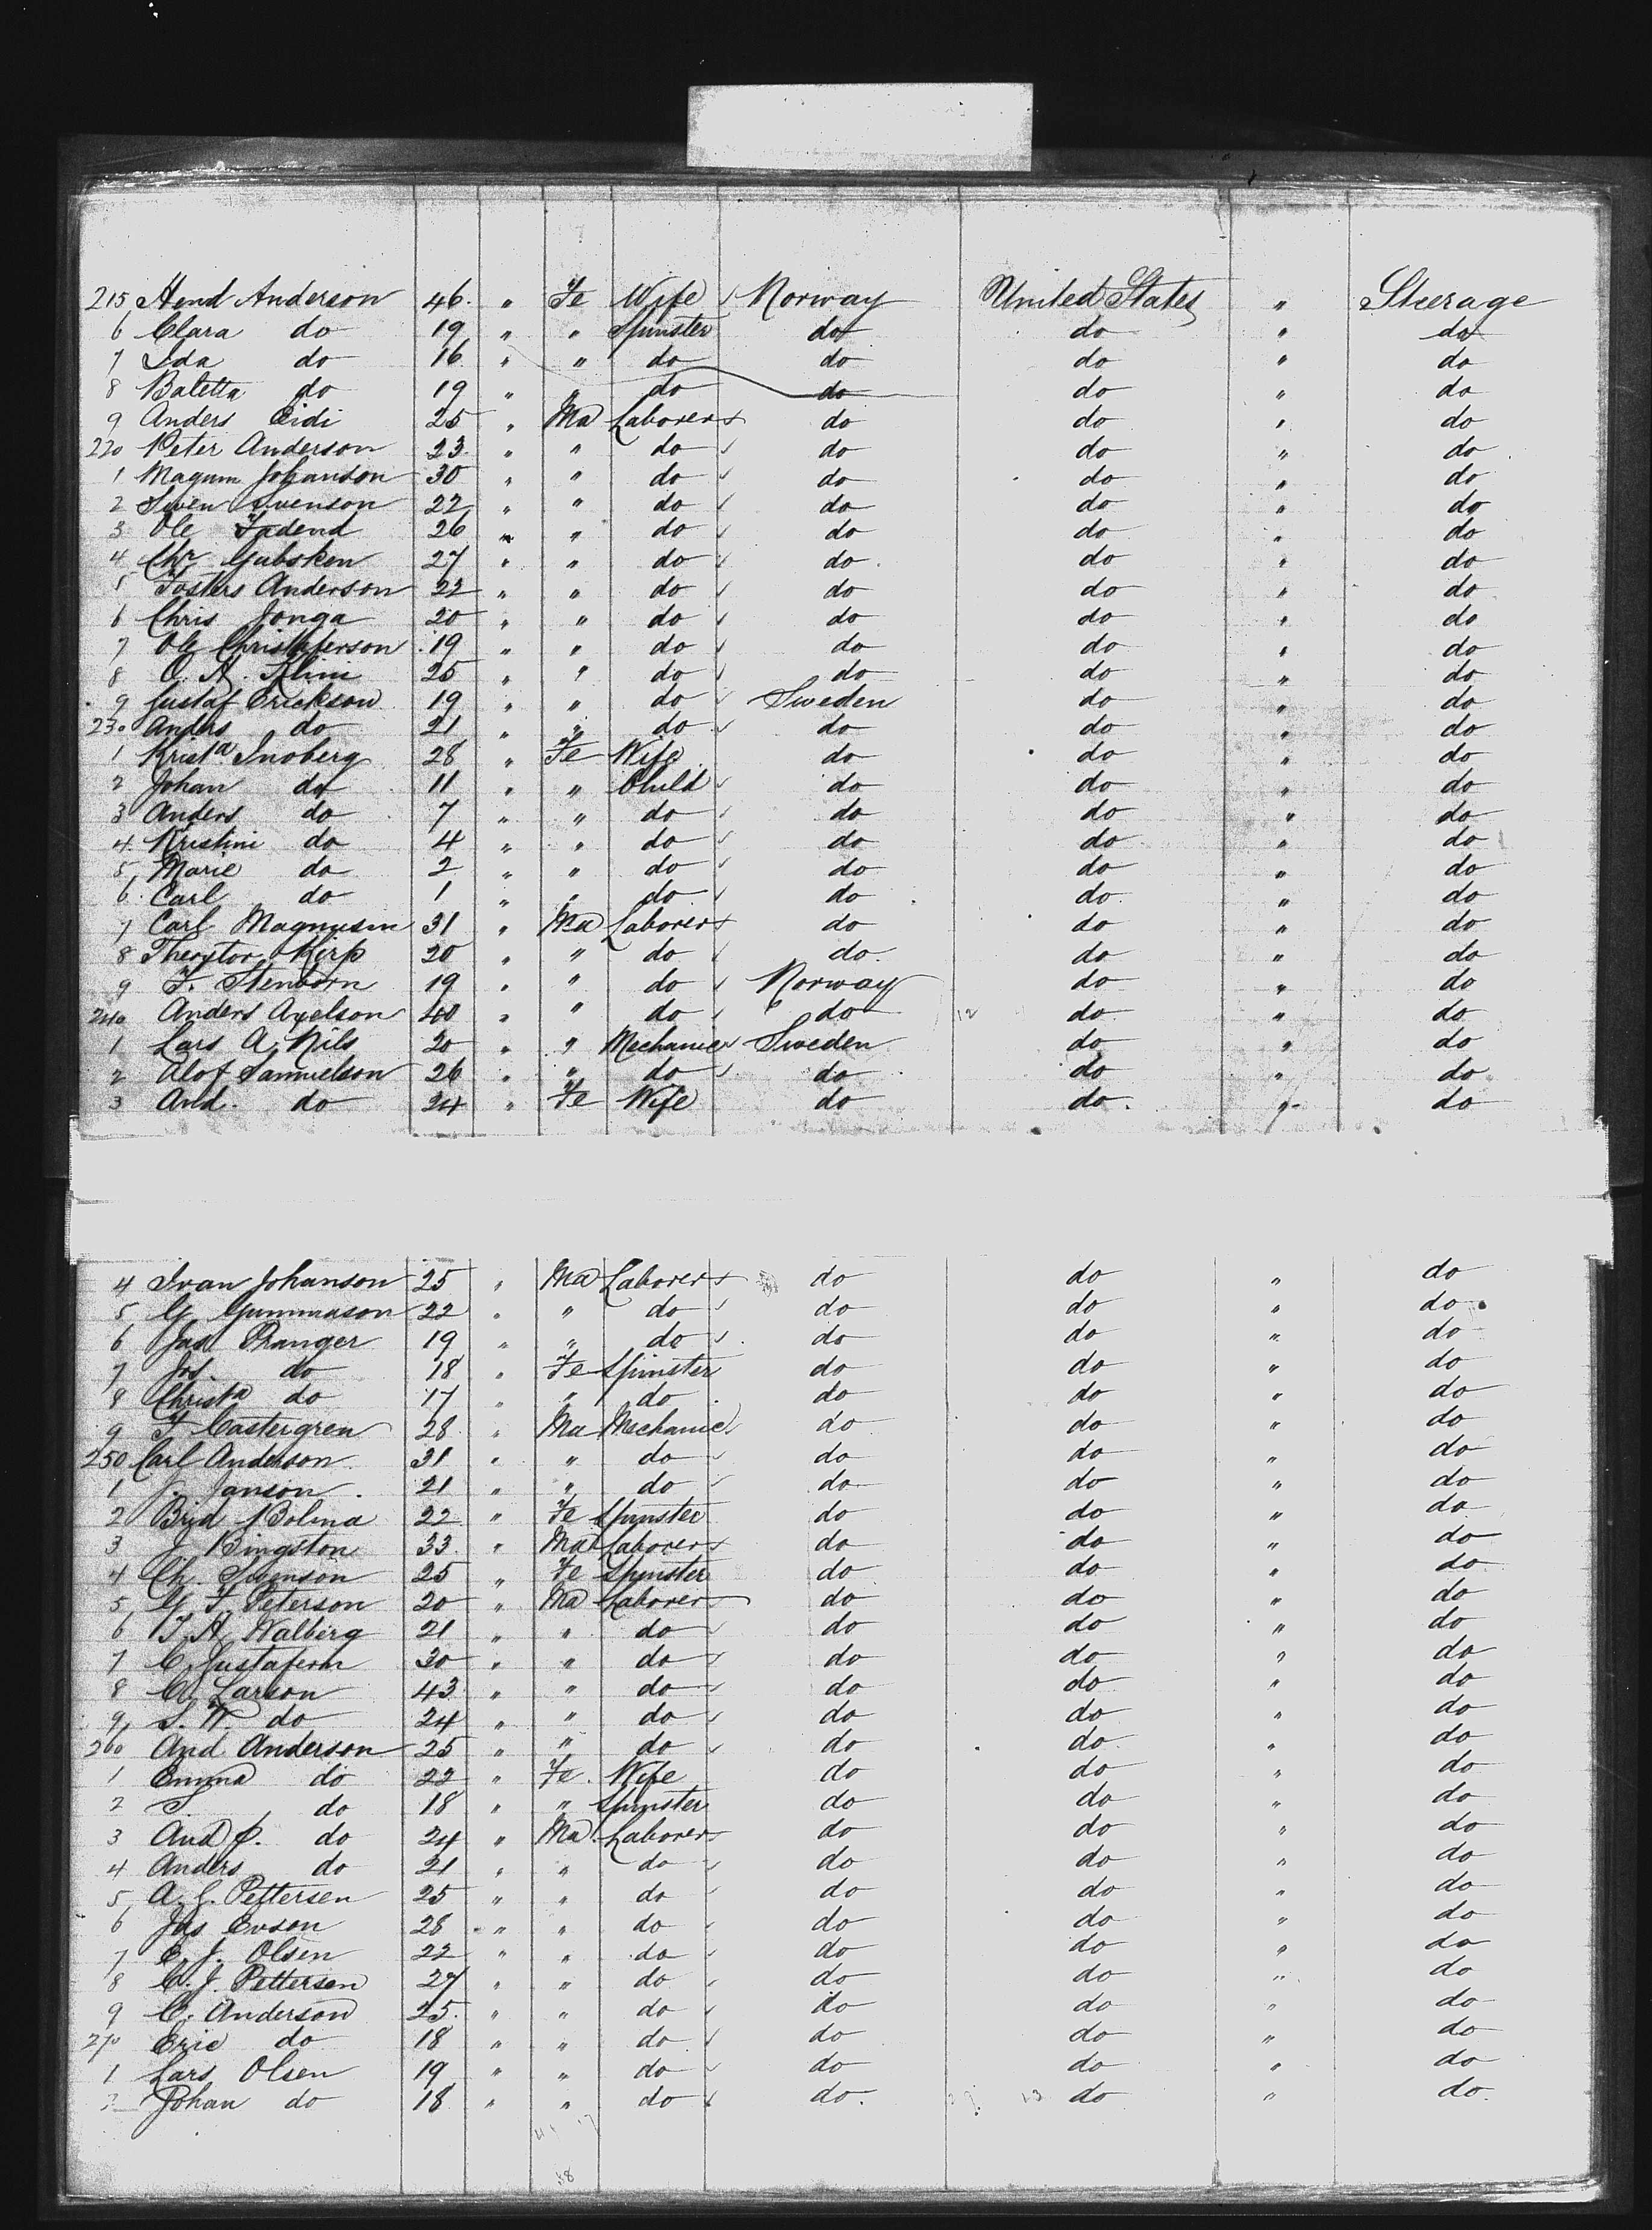 215 Hend Anderson 46. " Fe Wife Norway United States " Steerage
6 Clara do 19 " " Spinster do do " do
7 Ida do 16 " " do do do " do
8 Baletta do 19 " " do do do " do
9 Anders Eidi 25 " Ma Laborer do do " do
220 Peter Anderson 23. " " do do do " do
1 Magnm Johanson 30 " " do do do " do
2 Swen Swenson 22 " " do do do " do
3 Ole Fadend 26 " " do do do " do
4 Chr Gubsken 27 " " do do do " do
5 Fosters Anderson 22 " " do do do " do
6 Chris Jonga 20 " " do do do " do
7 Ole Christeferson 19 " " do do do " do
8 O. A. Klini 25 " " do do do " do
9 Gustaf Erickson 19 " " do Sweden do " do
230 Anders do 21 " " do do do " do
1 Krista Snoberg 28 " Fe Wife do do " do
2 Johan do 11 " " Child do do " do
3 Anders do 7 " " do do do " do
4 Kristini do 4 " " do do do " do
5 Marie do 2 " " do do do " do
6 Carl do 1 " " do do do " do
7 Carl Magnusin 31 " Ma Laborer do do " do
8 Therstor Kirp 20 " " do do do " do
9 F. Stenborn 19 " " do Norway do " do
240 Anders Axelson 40 " " do do 12 do " do
1 Lars A. Nils 20 " " Mechanic Sweden do " do
2 Alof Samuelson 26 " " do do do " do
3 And. do 24 " Fe Wife do do " do
4 Ivan Johanson 25 " Ma Laborer do do " do
5 G Gummason 22 " " do do do " do
6 Jas Pranger 19 " " do do do " do
7 Jos. do 18 " Fe Spinster do do " do
8 Christa do 17 " " do do do " do
9 F Castergren 28 " Ma Mechanic do do " do
250 Carl Anderson 31 " " do do do " do
1 J. Janson 21 " " do do do " do
2 Brid Bolma 22 " Fe Spinster do do " do
3 J Bingston 33 " Ma Laborer do do " do
4 Ch. Svenson 25 " Fe Spinster do do " do
5 G F Peterson 20 " Ma Laborer do do " do
6 T. A. Walberg 21 " " do do do " do
7 C Gustaferm 30 " " do do do " do
8 C. Larson 43 " " do do do " do
9 S. W. do 24 " " do do do " do
260 And Anderson 25 " " do do do " do
1 Emma do 22 " Fe. Wife do do " do
2 S. do 18 " " Spinster do do " do
3 And P. do 24 " Ma Laborer do do " do
4 Anders do 21 " " do do do " do
5 A. G. Pettersen 25 " " do do do " do
6 Jas Evson 28 " " do do do " do
7 E. J. Olsen 22 " " do do do " do
8 C. J. Pettersen 27 " " do do do " do
9 C. Anderson 25. " " do do do " do
270 Eric do 18 " " do do do " do
1 Lars Olsen 19 " " do do do " do
2 Johan do 18 " " do do 13 do " do